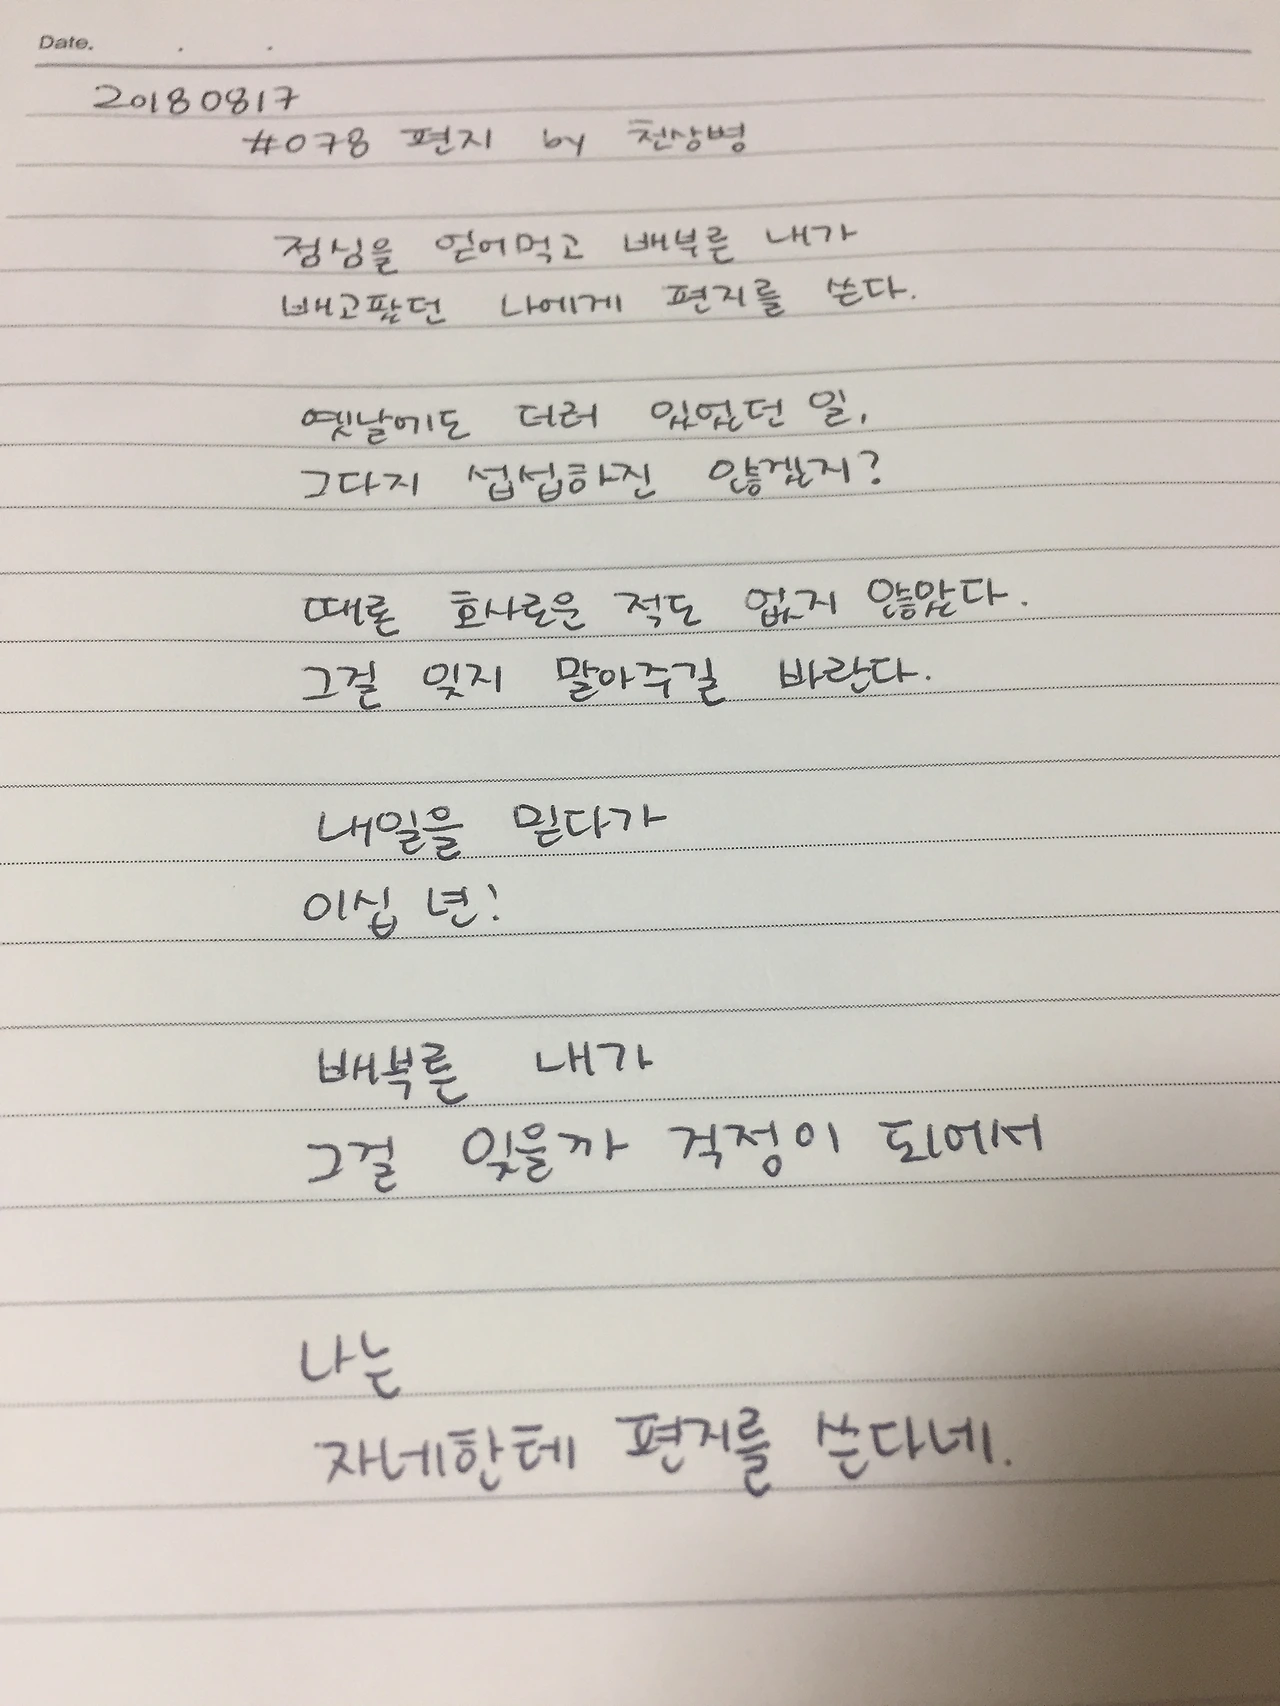 Date. . .
20180817
#078 편지 by 천상병
점심을 얻어먹고 배부른 내가
배고팠던 나에게 편지를 쓴다.
옛날에도 더러 있었던 일,
그다지 섭섭하진 않겠지?
때론 호사로운 적도 없지 않았다.
그걸 잊지 말아주길 바란다.
내일을 믿다가
이십 년!
배부른 내가
그걸 잊을까 걱정이 되어서
나는
자네한테 편지를 쓴다네.